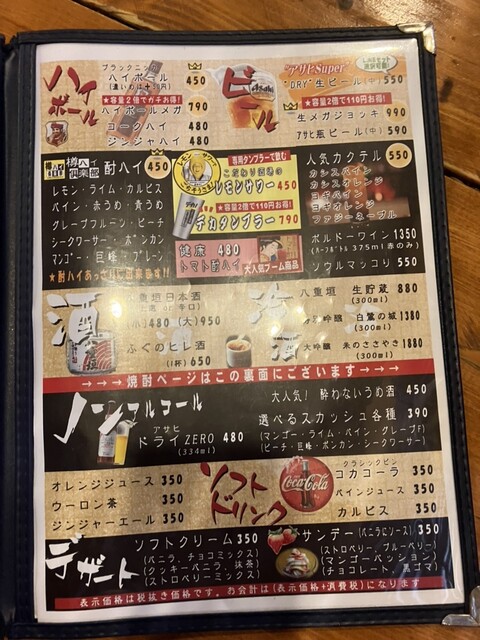 ハイボール
ブラックニッカ
ハイボール 450
(濃いめは+50円)
★容量2倍でガチお得!
ハイボールメガ 790
コークハイ 480
ジンジャハイ 480
ビール
"アサヒSuper"
"DRY"生ビール(中) 550
★容量2倍で110円お得!
生メガジョッキ 990
アサヒ瓶ビール(中) 590
樽ハイ倶楽部 酎ハイ 450
レモン・ライム・カルピス
パイン・ホうめ・青うめ
グレープフルーツ・ピーチ
シークワーサー・ポンカン
マンゴー・巨峰・プレーン
レモンサワー
専用タンブラーで飲む
こだわり酒場の
レモンサワー 450
★容量2倍で110円お得!
デカタンブラー 790
健康 480
トマト酎ハイ
大人気ブーム商品
人気カクテル 550
カシスパイン
カシスオレンジ
ヨギパイン
ヨギオレンジ
ファジーネーブル
ボルドーワイン 1350
(ハーフボトル 375ml 赤のみ)
ソウルマッコリ 550
酒
八重垣日本酒
(小) 480 (大) 950
ふぐのヒレ酒
(1杯) 650
冷酒
八重垣 生貯蔵 880
(300ml)
吟醸 白鷺の城 1380
(300ml)
大吟醸 米のささやき 1880
(300ml)
→→→焼酎ページはこの裏面にございます→→→
ノンアルコール
アサヒ
ドライZERO 480
(334ml)
大人気! 酔わないうめ酒 450
選べるスカッシュ各種 390
(マンゴー・ライム・パイン・グレープF)
(ピーチ・巨峰・ポンカン・シークワーサー)
オレンジジュース 350
ウーロン茶 350
ジンジャーエール 350
ソフトドリンク
Coca-Cola
クラシックビン
コカコーラ 350
パインジュース 350
カルピス 350
デザート
ソフトクリーム 350
(バニラ、チョコミックス)
(クッキーバニラ、抹茶)
(ストロベリーミックス)
サンデー(バニラにソース) 350
(ストロベリー、ブルーベリー)
(マンゴーパッション)
(チョコレート、黒ゴマ)
表示価格は税抜き価格です。お会計は(表示価格+消費税)になります